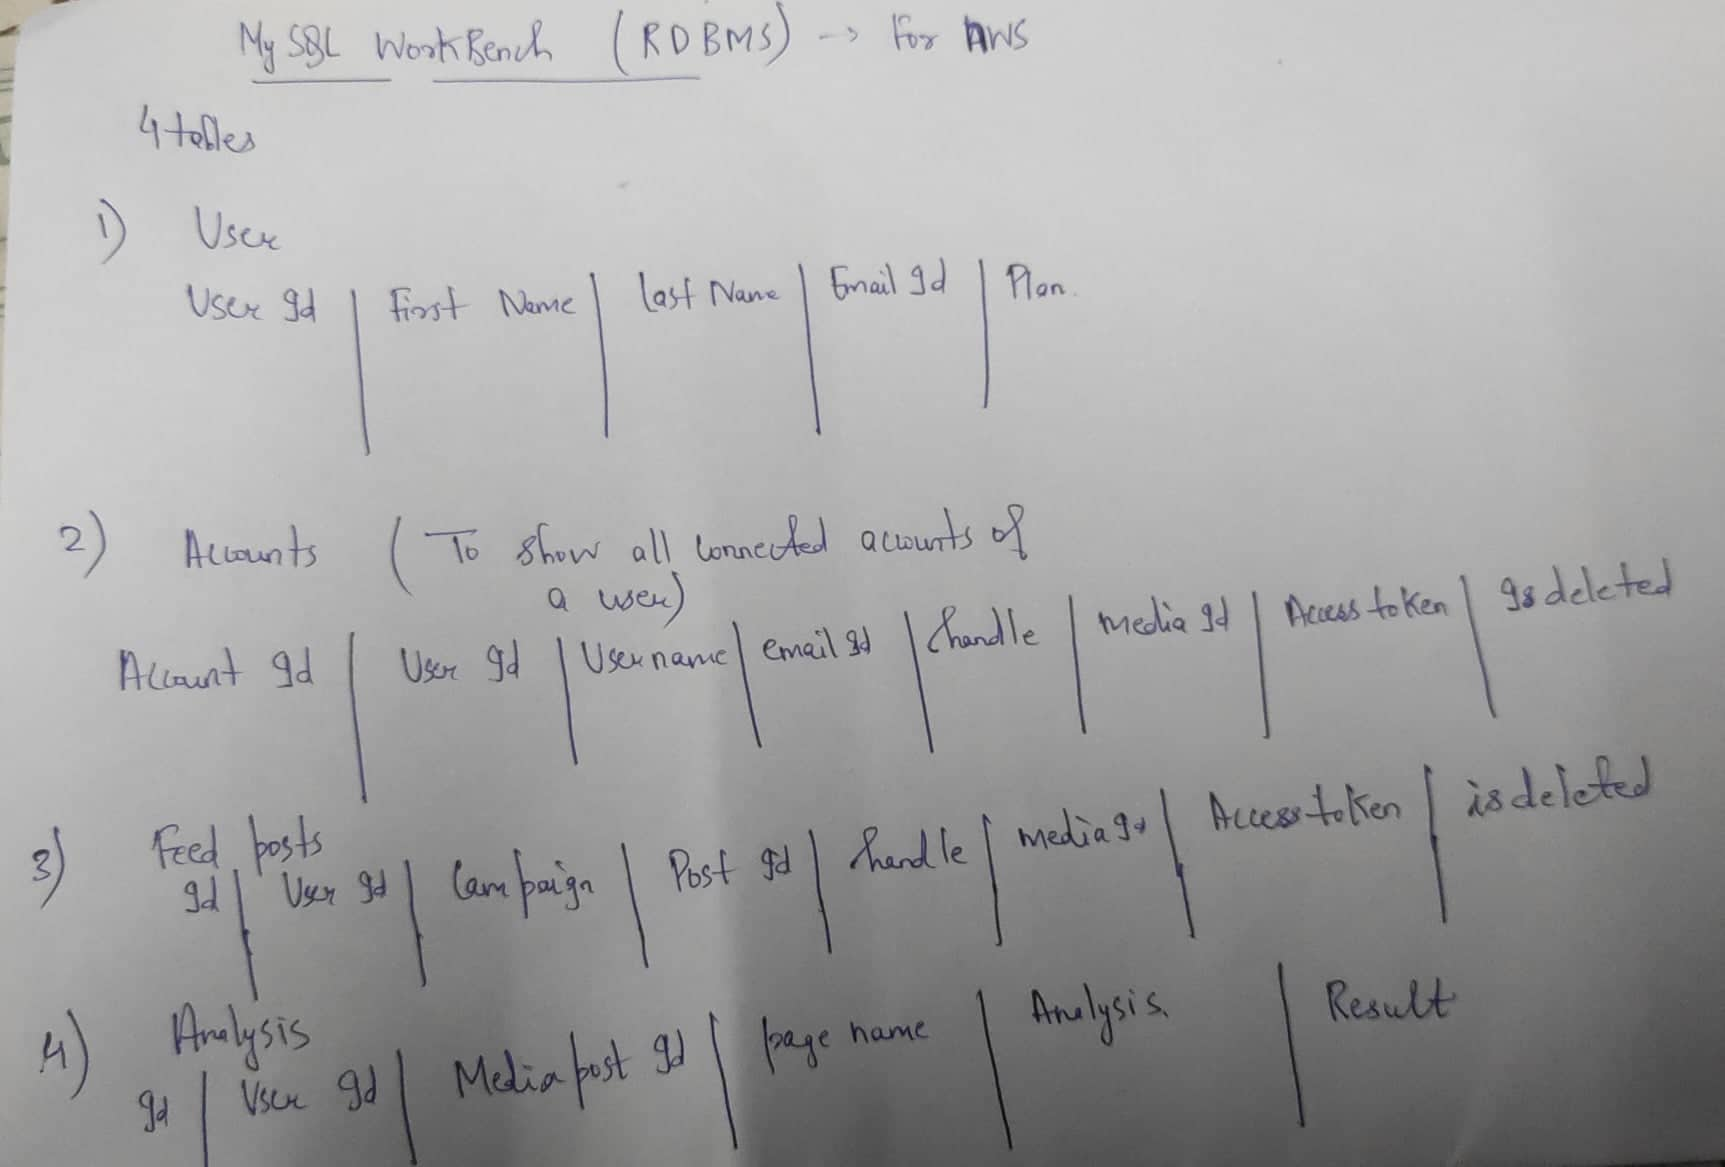 My SQL WorkBench (RDBMS) -> For AWS
4 tables
1) User
User Id | First Name | Last Name | Email Id | Plan.
2) Accounts ( To show all connected accounts of
a user)
Account Id | User Id | Username | email Id | handle | media Id | Access token | Is deleted
3) Feed posts
Id | User Id | Campaign | Post Id | handle | media Id | Access token | is deleted
4) Analysis
Id | User Id | Media post Id | page name | Analysis. | Result